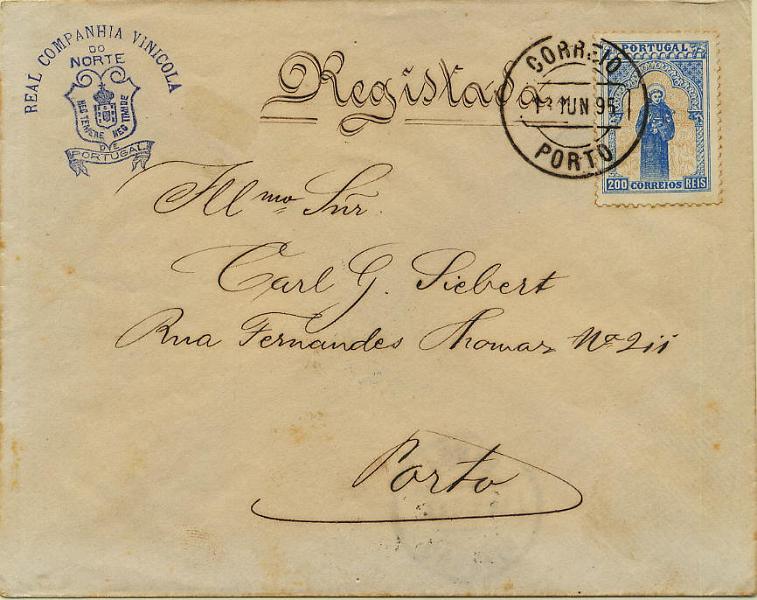 REAL COMPANHIA VINICOLA
DO
NORTE
NEC TEMERE NEC TIMIDE
DE
PORTUGAL
Registada
CORREIO
JUN 95
PORTO
PORTUGAL
200 CORREIOS REIS
Illmo Snr.
Carl G. Siebert
Rua Fernandes Thomaz No 211
Porto